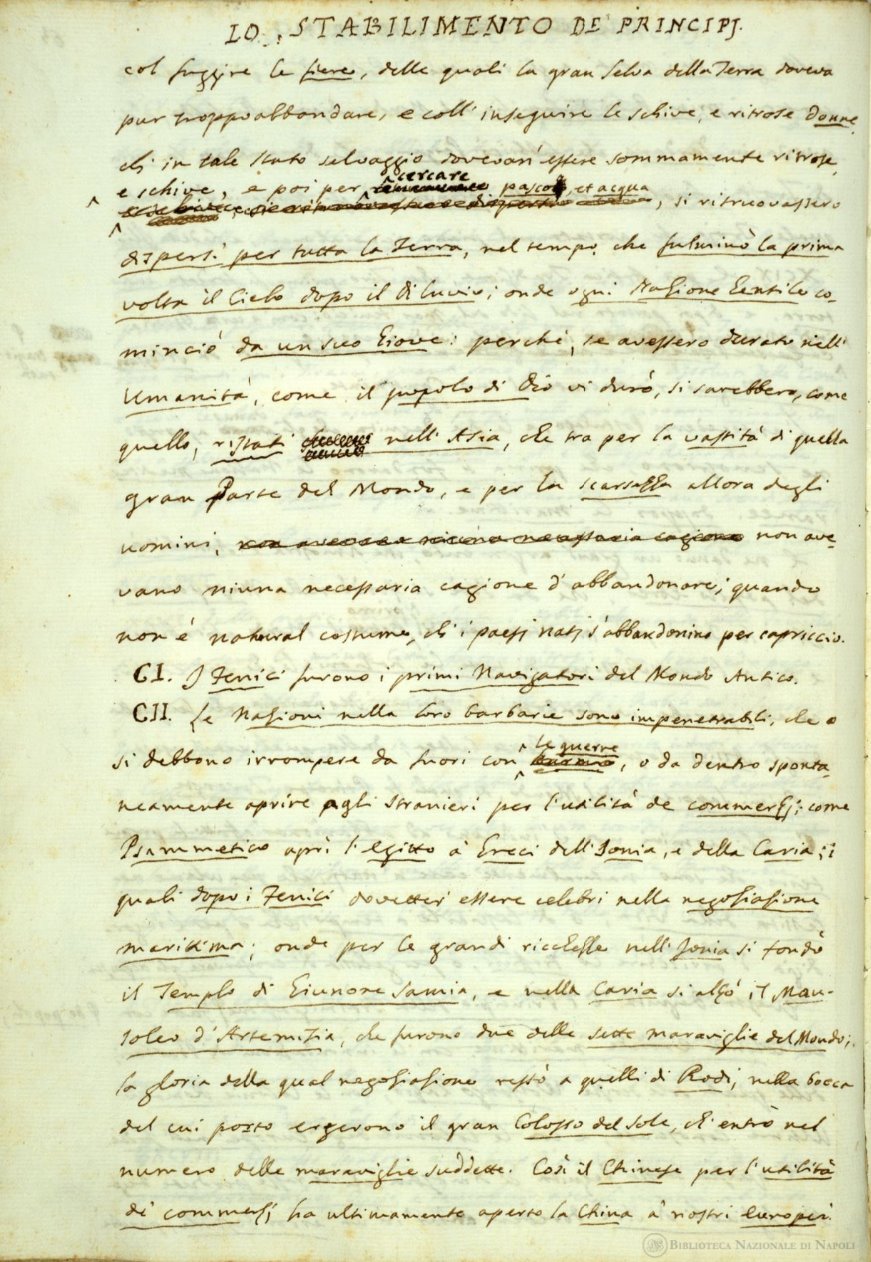 LO STABILIMENTO DE' PRINCIPJ.
col fuggire le fiere, delle quali la gran Selva della Terra doveva
pur troppo abbondare, e coll' inseguire le schive, e ritrose donne,
ch' in tale stato selvaggio dovevan' essere sommamente ritrose,
e schive, e poi per cercare pascol, et acqua, si ritruovassero
dispersi per tutta la Terra, nel tempo, che fulminò la prima
volta il Cielo dopo il Diluvio; onde ogni Nazione Gentile co-
minciò da un suo Giove: perchè, se avessero durato nell'
Umanità, come il popolo di Dio vi durò, si sarebbero, come
quello, ristati nell' Asia, che tra per la vastità di quella
gran Parte del Mondo, e per la scarsezza allora degli
uomini, non ave-
vano niuna necessaria cagione d' abbandonare; quando
non è natural costume, ch' i paesi natj s' abbandonino per capriccio.
CI. I Fenici furono i primi Navigatori del Mondo Antico.
CII. Le Nazioni nella loro barbarie sono impenetrabili, che o
si debbono irrompere da fuori con le guerre, o da dentro sponta-
neamente aprire agli stranieri per l' utilità de' commerzj; come
Psammetico aprì l' Egitto à Greci dell' Jonia, e della Caria; i
quali dopo i Fenici dovetter' essere celebri nella negoziazione
marittima; onde per le grandi ricchezze nell' Jonia si fondò
il Templo di Giunone Samia, e nella Caria si alzò il Mau-
soleo d' Artemisia, che furono due delle sette maraviglie del Mondo;
la gloria della qual negoziazione restò a quelli di Rodi, nella bocca
del cui porto ergerono il gran Colosso del Sole, ch' entrò nel
numero delle maraviglie suddette. Così il Chinese per l' utilità
de' commerzj ha ultimamente aperto la China à nostri Europei.
BIBLIOTECA NAZIONALE DI NAPOLI